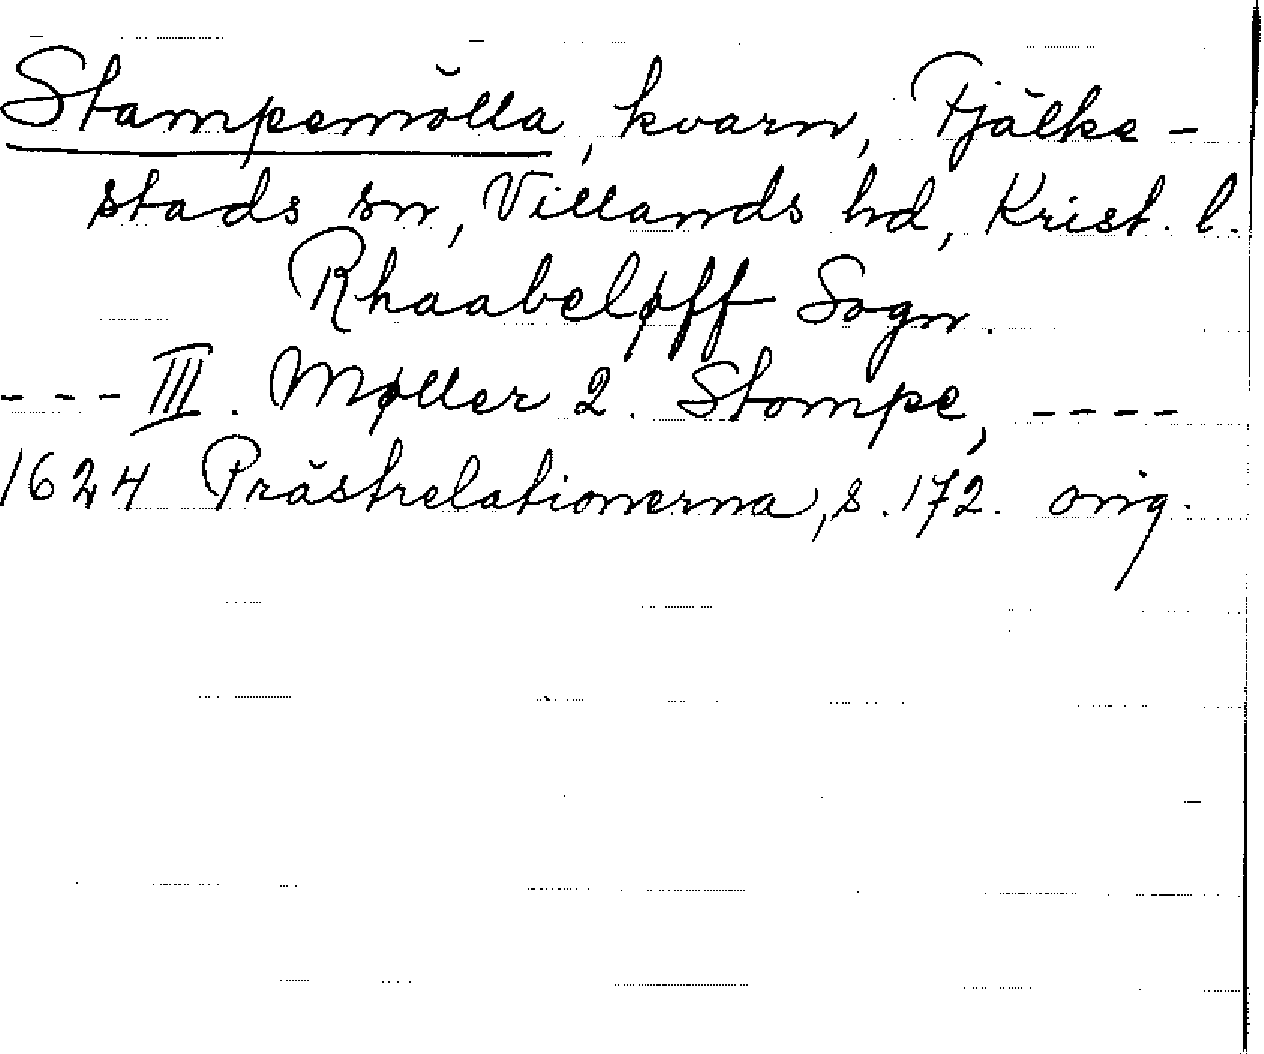 Stampemölla, kvarn, Fjälke-
stads sn, Villands hd, Krist. l.
Rhaabeløff Sogn.
- - - III. Møller 2. Stompe, - - - -
1624 Prästrelationerna, s. 172. orig.